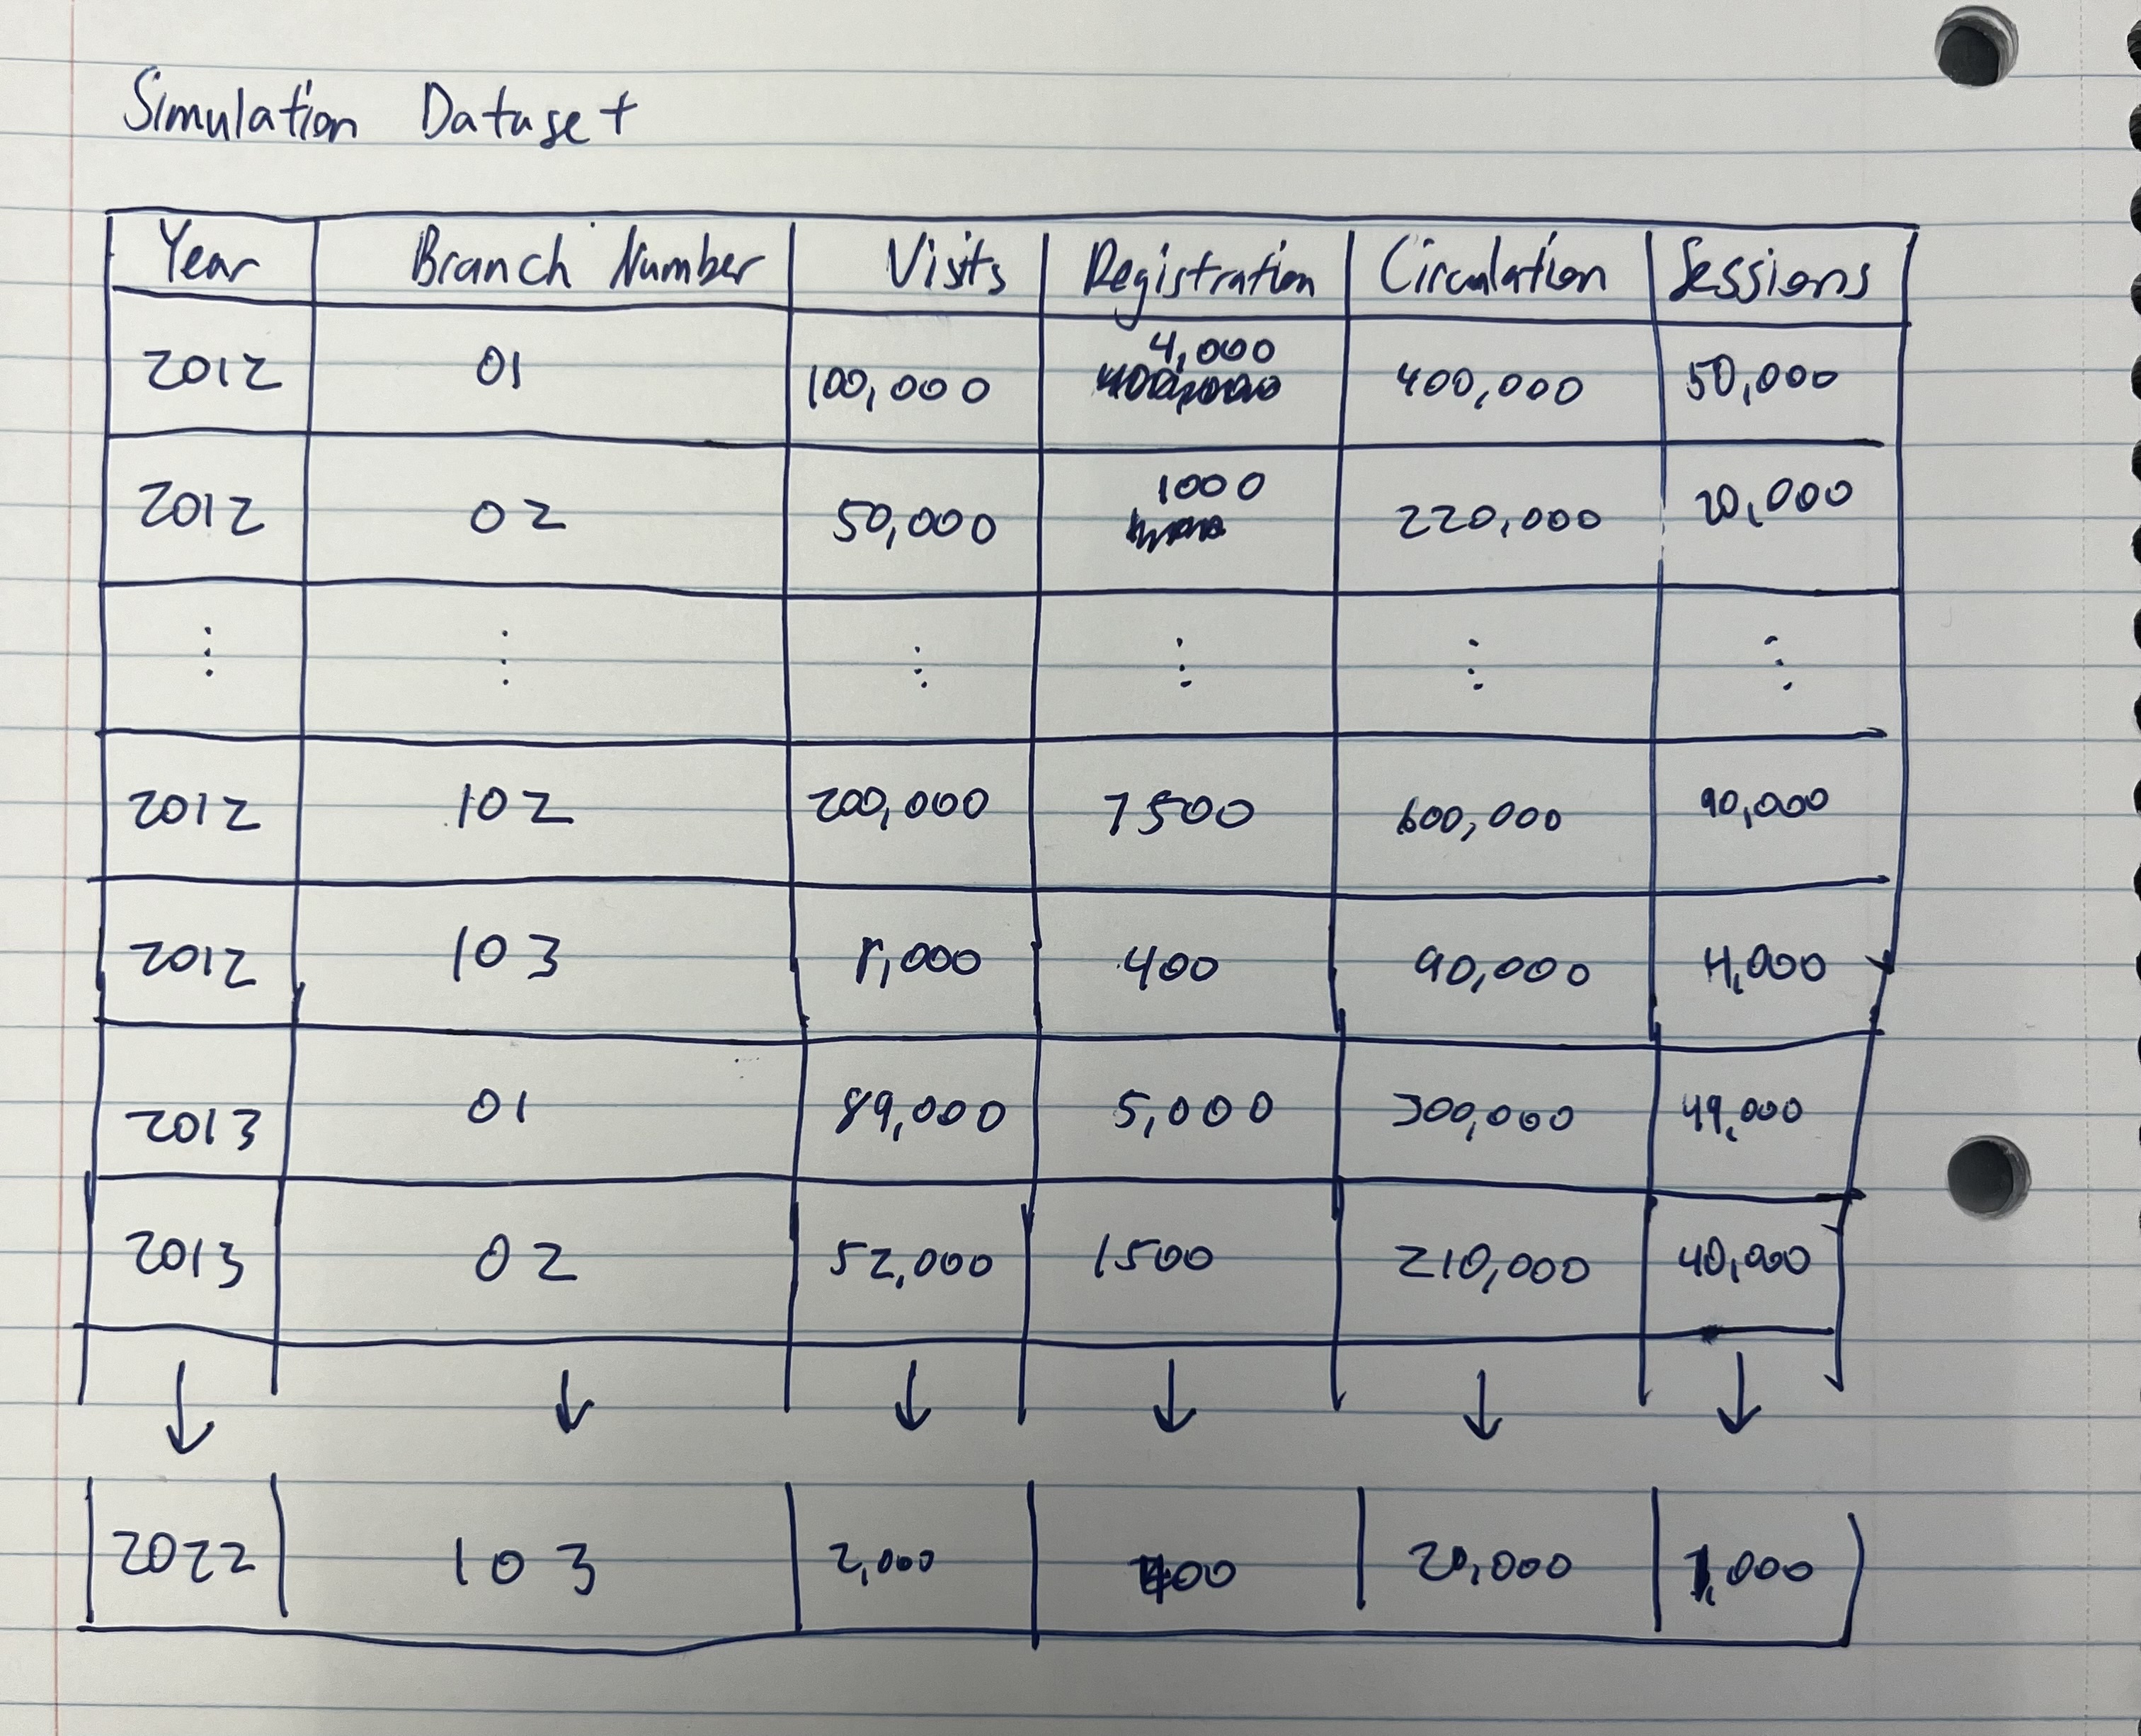 Simulation Dataset
Year Branch Number Visits Registration Circulation Sessions
2012 01 100,000 4,000 400,000 50,000
2012 02 50,000 1000 220,000 20,000
⋮ ⋮ ⋮ ⋮ ⋮ ⋮
2012 102 200,000 7500 600,000 90,000
2012 103 8,000 400 90,000 4,000
2013 01 89,000 5,000 300,000 49,000
2013 02 52,000 1500 210,000 40,000
↓ ↓ ↓ ↓ ↓ ↓
2022 103 2,000 20,000 1,000